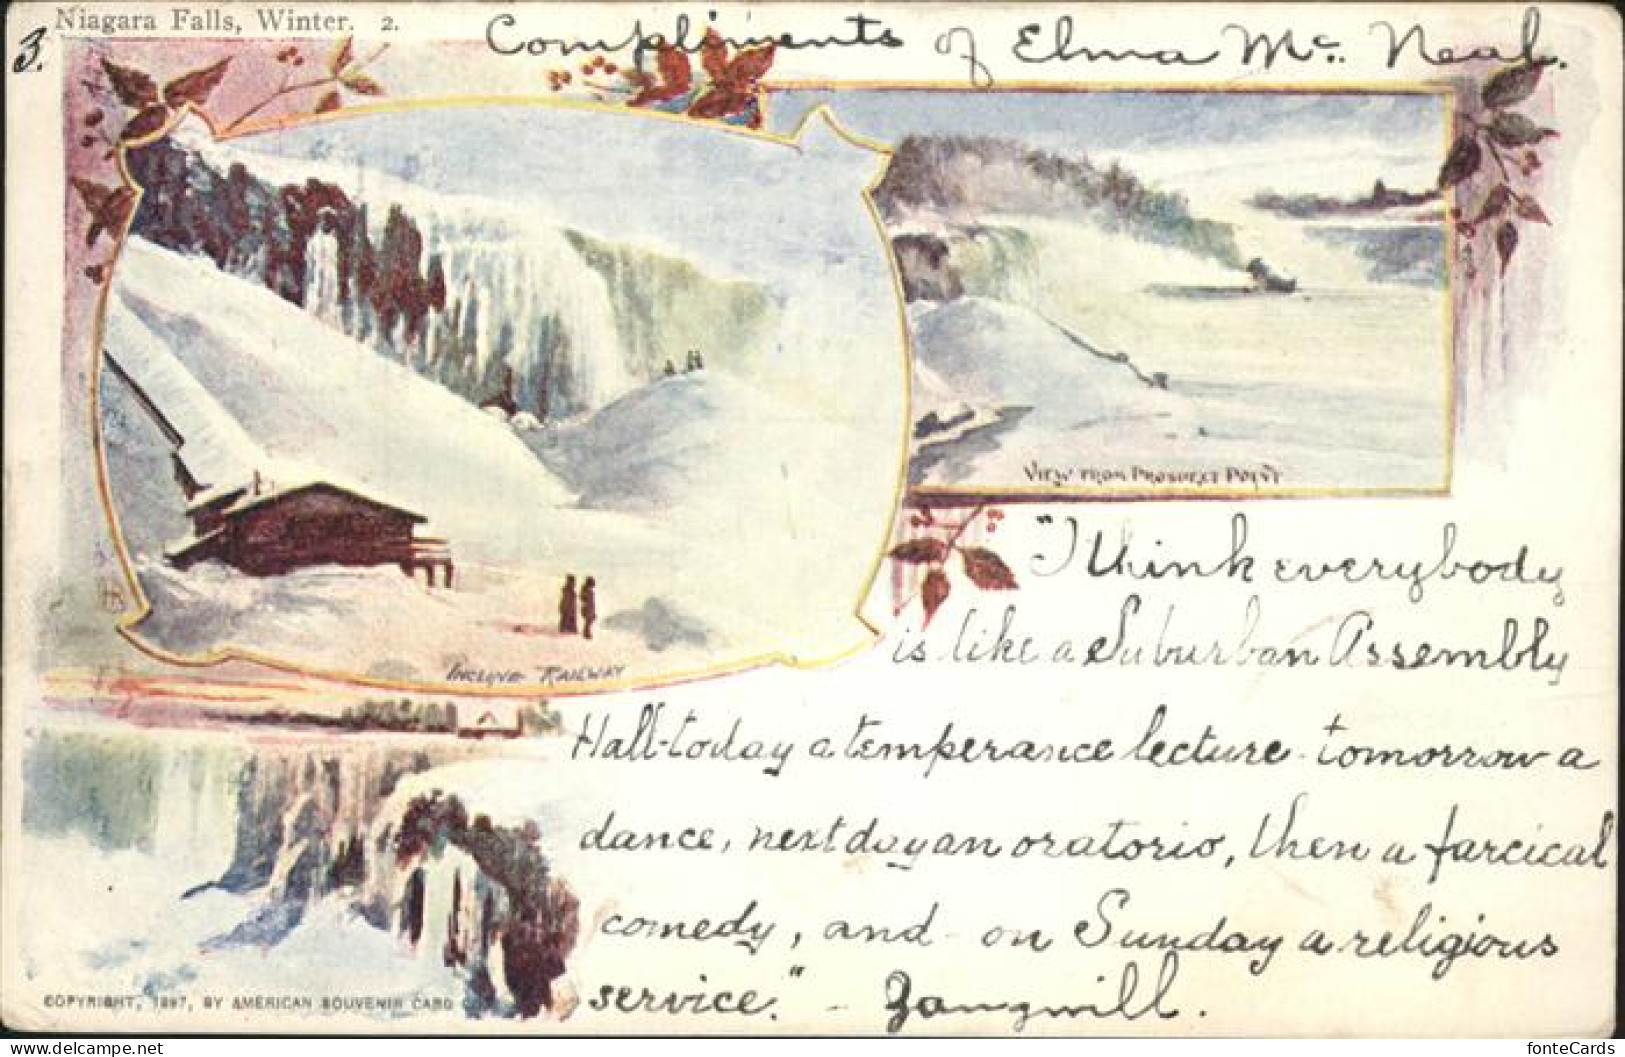 Niagara Falls, Winter. 2.
3.
Compliments of Elma Mc. Neal.
VIEW FROM PROSPECT POINT
INCLINE RAILWAY
"I think everybody
is like a Suburban Assembly
Hall-today a temperance lecture - tomorrow a
dance, next day an oratorio, then a farcical
comedy, and - on Sunday a religious
service." - Zangwill.
COPYRIGHT, 1897, BY AMERICAN SOUVENIR CARD CO.
fonteCards